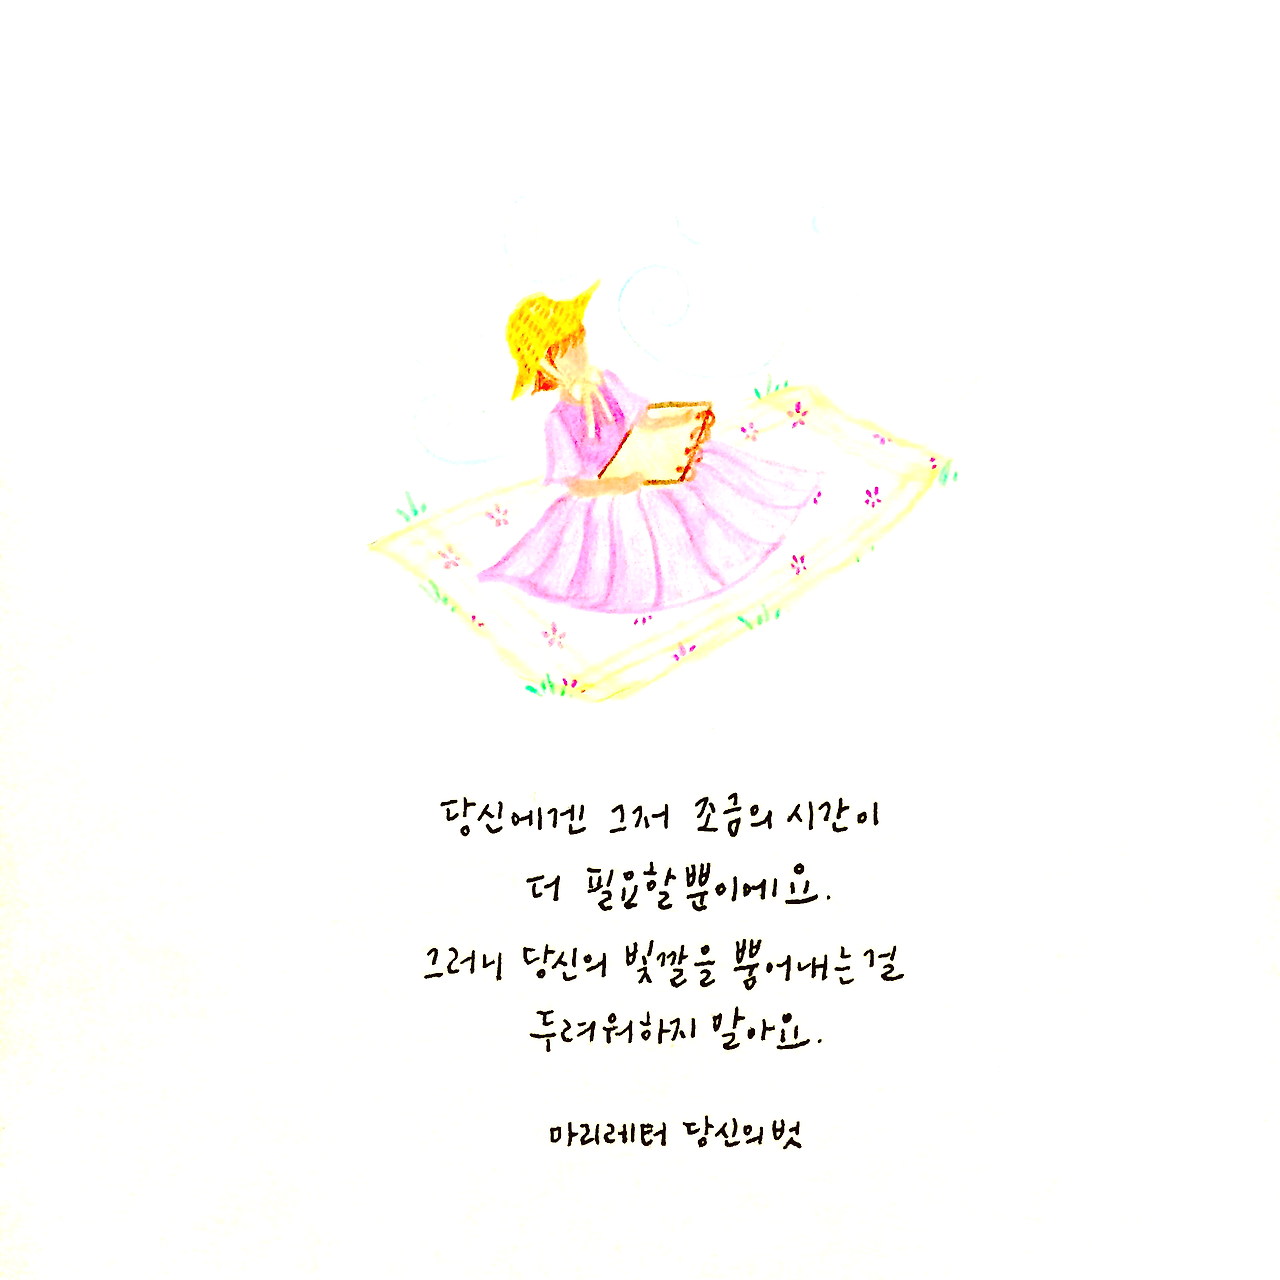 당신에겐 그저 조금의 시간이
더 필요할뿐이에요.
그러니 당신의 빛깔을 뿜어내는걸
두려워하지 말아요.
마리레터 당신의벗